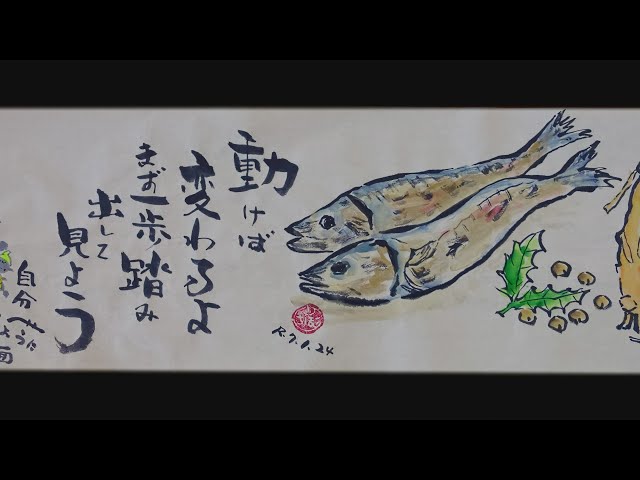 動けば
変わるよ
まず一歩踏み
出して
見よう
R.7.1.24
自分